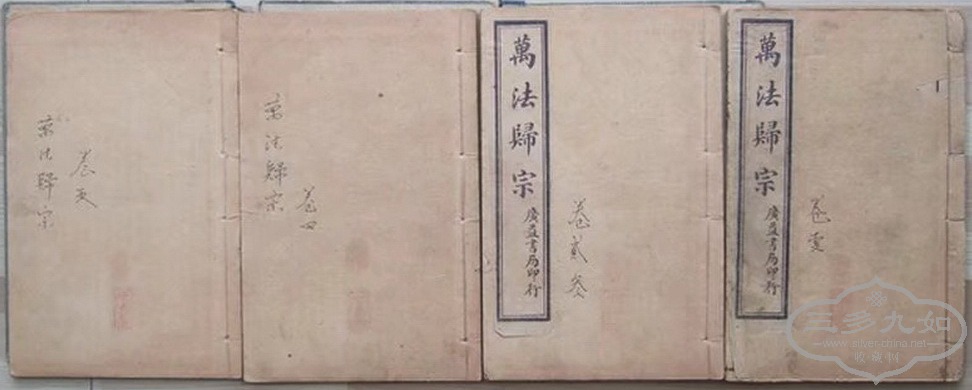 卷
萬法歸宗 廣益書局印行
卷貳叁
萬法歸宗 廣益書局印行
卷四
萬法歸宗
卷
萬法歸宗
三多九如
www.silver-china.net